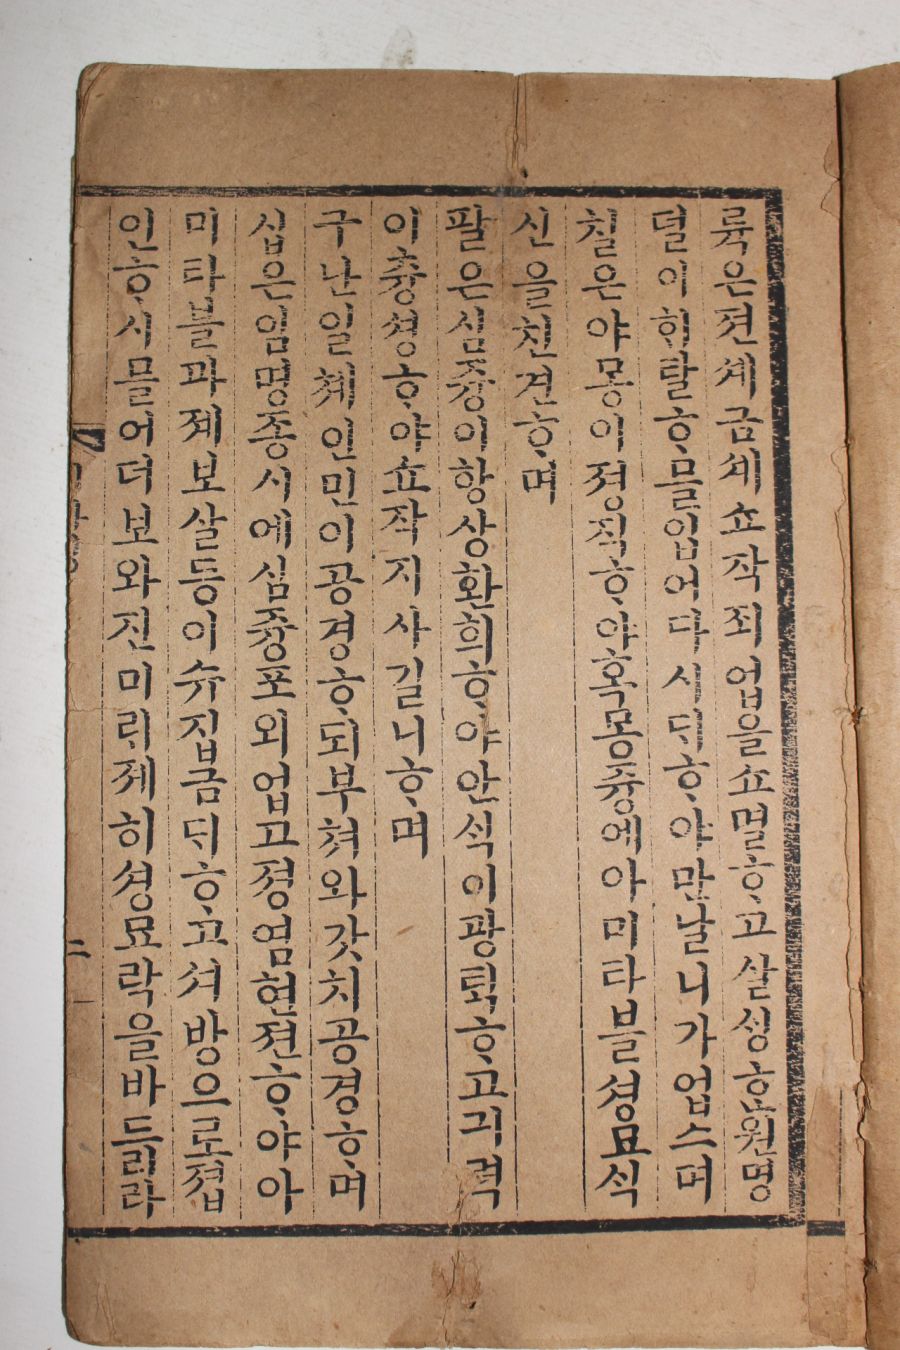 륙은젼셰금셰쇼작죄업을쇼멸ᄒᆞ고살싱ᄒᆞᆫ원명
덜이ᄒᆡ탈ᄒᆞ믈입어다시ᄃᆡᄒᆞ야만날니가업스며
칠은야몽이졍직ᄒᆞ야혹몽즁에아미타불셩묘식
신을친견ᄒᆞ며
팔은심즁이항상환희ᄒᆞ야안식이광퇵ᄒᆞ고긔력
이츙셩ᄒᆞ야쇼작지사길니ᄒᆞ며
구난일쳬인민이공경ᄒᆞ되부쳐와갓치공경ᄒᆞ며
십은임명종시에심즁포외업고졍염현젼ᄒᆞ야아
미타불과졔보살등이슈집금ᄃᆡᄒᆞ고셔방으로졉
인ᄒᆞ시믈어더보와진미ᄅᆡ졔히셩묘락을바드리라
二